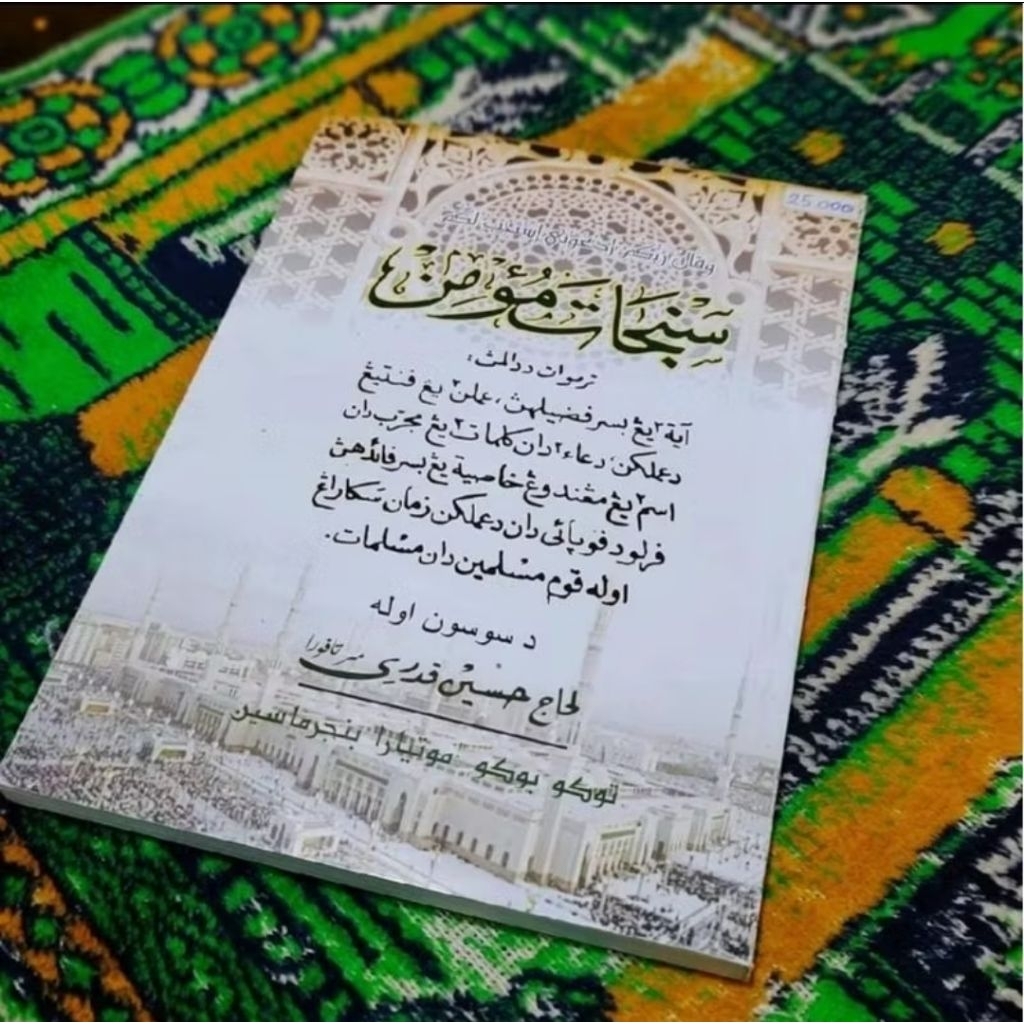 25.000
وقال ربكم ادعوني استجب لكم
سنجات مؤمن
ترموات ددالمڽ :
آية٢ يڠ بسر فضيلهڽ، عملن٢ يڠ فنتيڠ
دعملكن، دعاء٢ دان كلمات٢ يڠ مجرّب دان
اسم٢ يڠ مڠندوڠ خاصية يڠ بسر فائدهڽ
فرلو دفوپائي دان دعملكن زمان سكارڠ
اوله قوم مسلمين دان مسلمات.
د سوسون اوله
لحاج حسين قدري مرتافورا
توكو بوكو موتيارا بنجرماسين